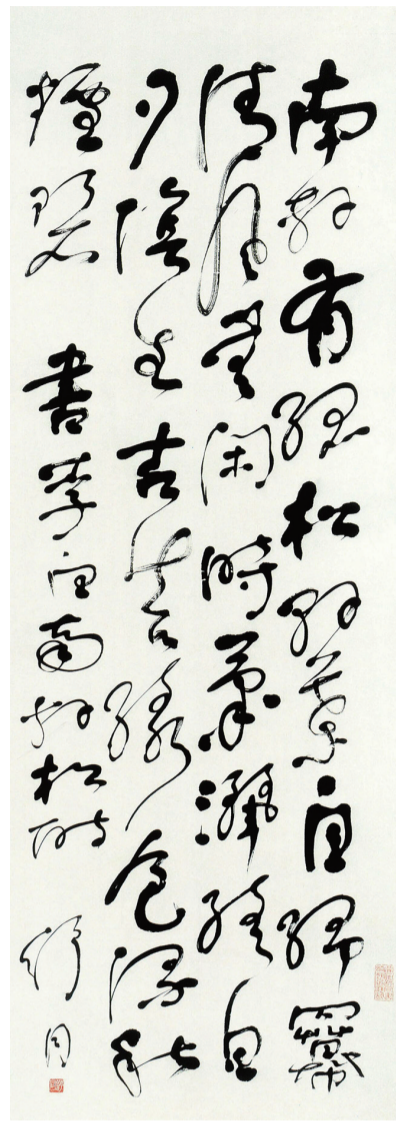 南軒有孤松柯葉自綿羃
清風無閑時蕭灑終日
夕陰生古苔綠色染秋
煙碧 書李白南軒松詩 舒同